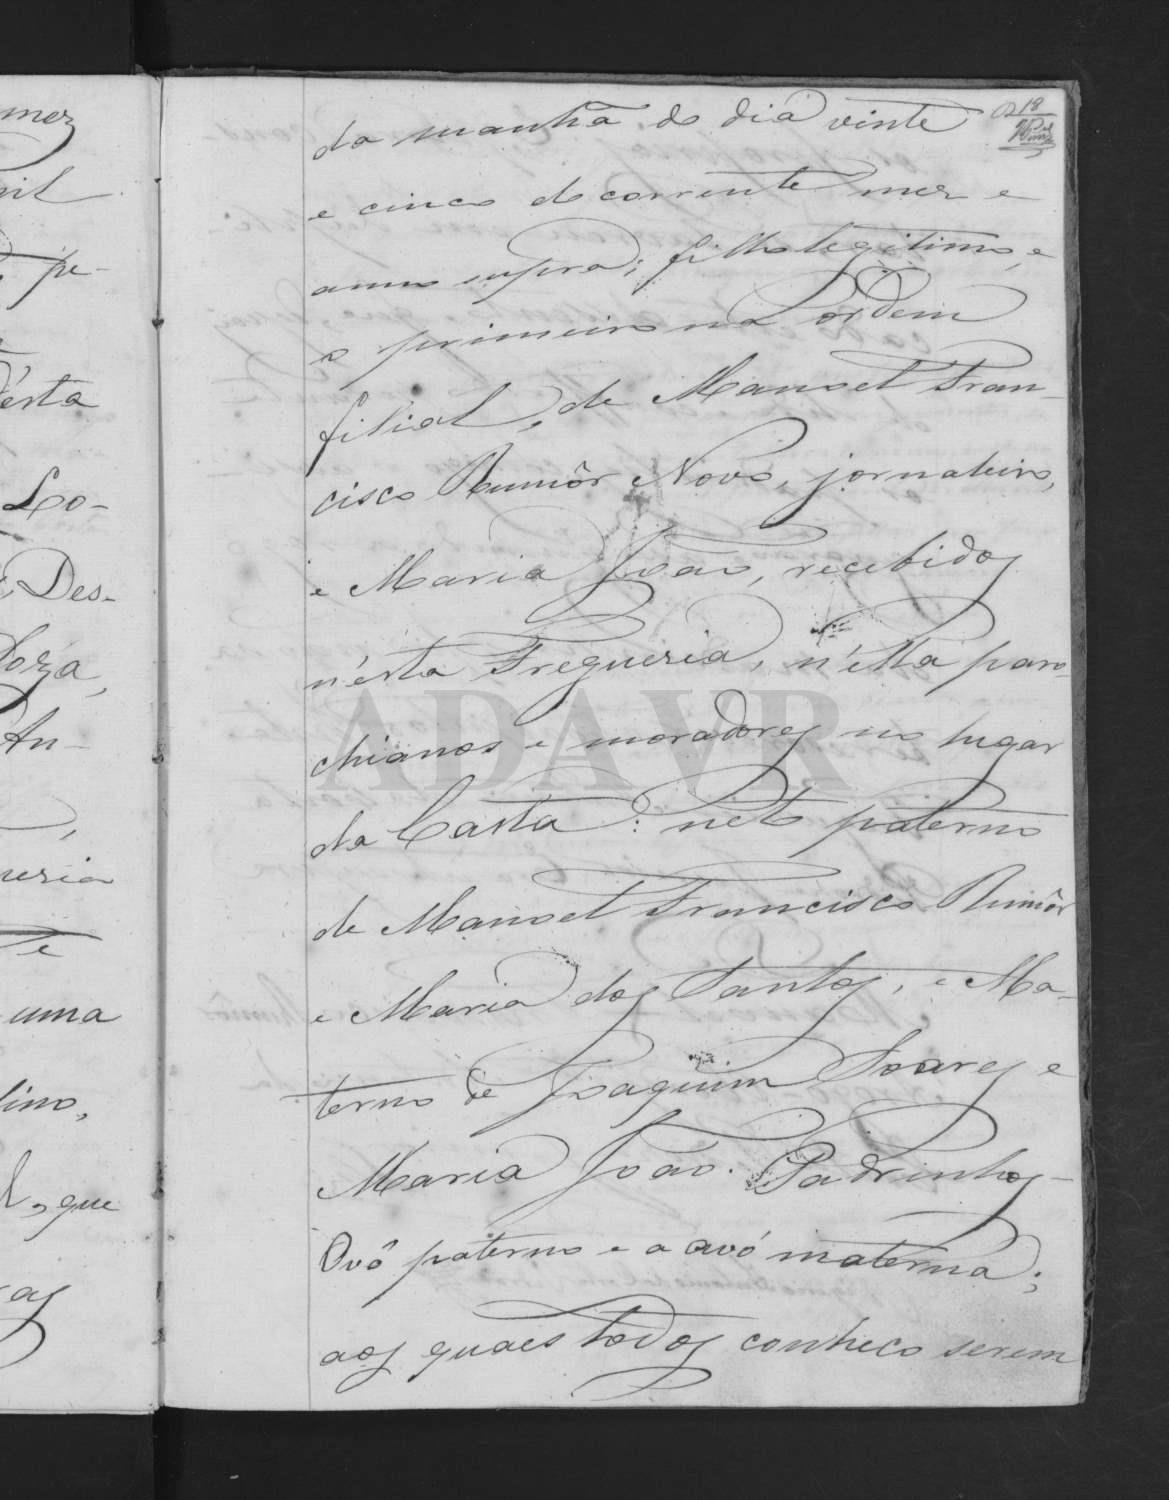 mez
18
da manhã do dia vinte
e cinco do corrente mez e
anno supra; filho legitimo, e
o primeiro na ordem
filial, de Manoel Fran-
cisco Rumôr Novo, jornaleiro,
e Maria João, recebidos
n'ésta Freguesia, n'ella paro-
chianos e moradores no lugar
da Costa: neto paterno
de Manoel Francisco Rumôr
e Maria dos Santos, e Ma-
terno de Joaquim Soares e
Maria João. Padrinhos
Ovô paterno e a avó materna;
aos quaes todos conheço serem
pe-
ésta
Lo-
Des-
An-
uma
que
ADAVR